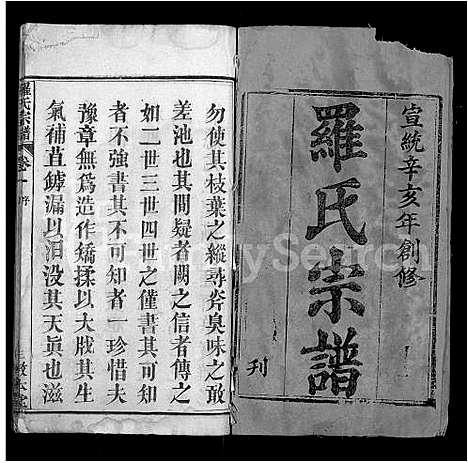 宣統辛亥年創修
羅氏宗譜
刊
勿使其枝葉之縱尋斧臭味之敢
差池也其間疑者闕之信者傳之
如二世三世四世之僅書其可知
者不強書其不可知者一珍惜夫
豫章無爲造作矯揉以大戕其生
氣補苴罅漏以汨没其天眞也滋
羅氏宗譜
卷一
序
FamilySearch